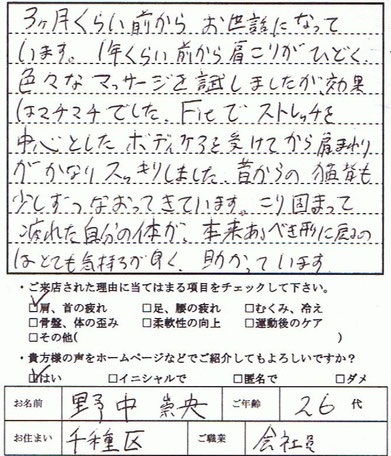 3ヶ月くらい前から、お世話になって
います。1年くらい前から肩こりがひどく、
色々なマッサージを試しましたが効果
はマチマチでした。Fitでストレッチを
中心とした、ボディケアを受けてから肩まわり
がかなりスッキリしました。昔からの猫背も
少しずつなおってきています。こり固まって
疲れた自分の体が、本来あるべき形に戻るの
はとても気持ちが良く、助かっています
・ご来店された理由に当てはまる項目をチェックして下さい。
☑肩、首の疲れ □足、腰の疲れ □むくみ、冷え
□骨盤、体の歪み □柔軟性の向上 □運動後のケア
□その他( )
・貴方様の声をホームページなどでご紹介してもよろしいですか？
☑はい □イニシャルで □匿名で □ダメ
お名前 野中 崇央 ご年齢 26 代
お住まい 千種区 ご職業 会社員